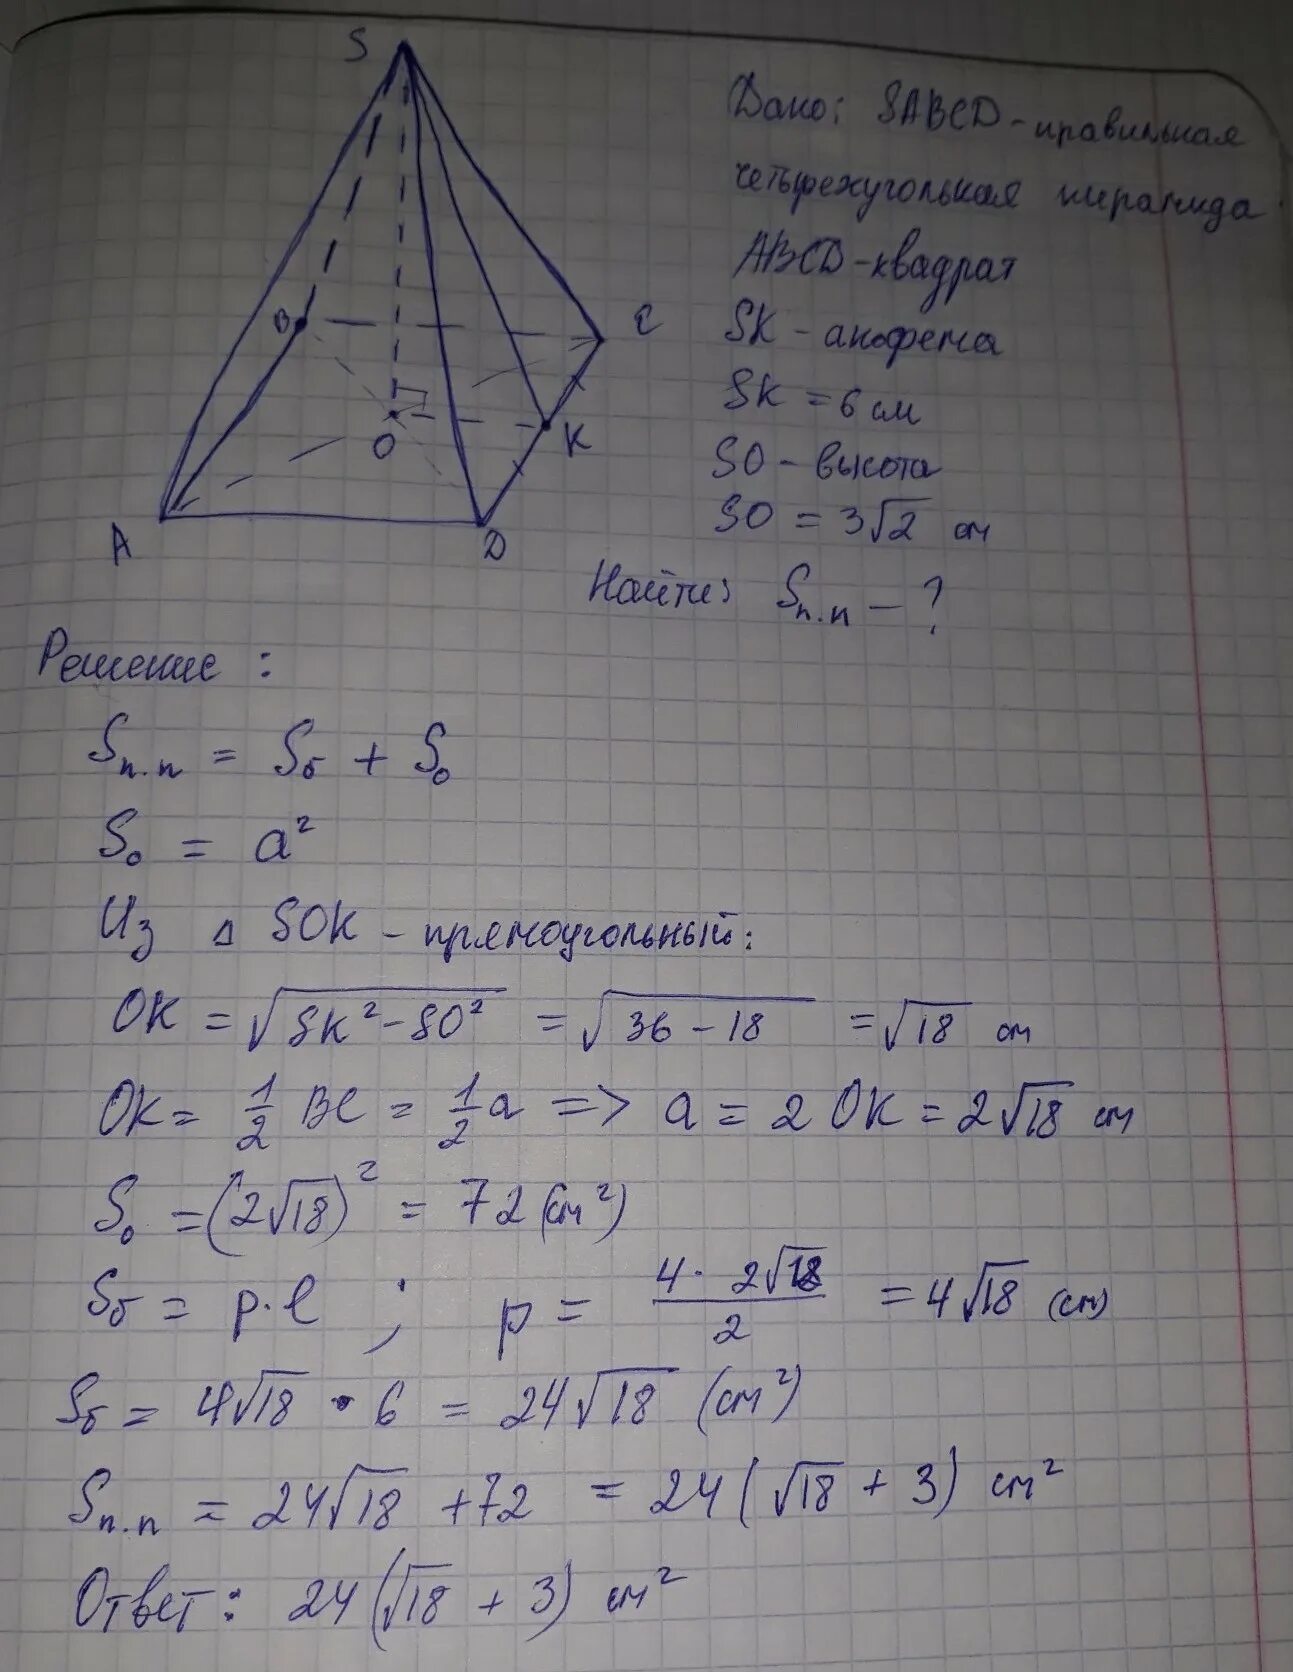 S
Дано: SABCD - правильная
четырехугольная пирамида
ABCD - квадрат
B
C
SK - апофема
SK = 6 см
O
K
SO - высота
SO = 3√2 см
A
D
Найти: Sп.п - ?
Решение:
Sп.п = Sб + So
So = a²
Из Δ SOK - прямоугольный:
OK = √(SK² - SO²) = √(36 - 18) = √18 см
OK = 1/2 BC = 1/2 a => a = 2 OK = 2√18 см
So = (2√18)² = 72 (см²)
Sб = p·l ; p = (4 · 2√18)/2 = 4√18 (см)
Sб = 4√18 · 6 = 24√18 (см²)
Sп.п = 24√18 + 72 = 24(√18 + 3) см²
Ответ: 24(√18 + 3) см²